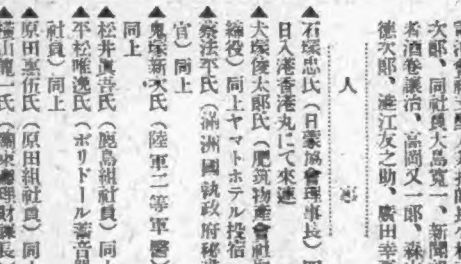 次郎、同社員大島寛一、新聞
者酒巻譲治、富岡又一郎、森
徳次郎、進江友之助、廣田幸
人事
▲石塚忠氏（日蒙協會理事長）
日入港香港丸にて來連
▲犬塚俊太郎氏（肥筑物産會社
締役）同上ヤマトホテル投宿
▲蔡法平氏（滿洲國執政府秘
官）同上
▲鬼塚新次氏（陸軍二等軍醫）
同上
▲松井眞吾氏（鹿島組社員）同
▲平松唯逸氏（ポリドール蓄音
社員）同上
▲原田嘉伍氏（原田組社員）同
▲横山龍一氏（關東廳理財課長）